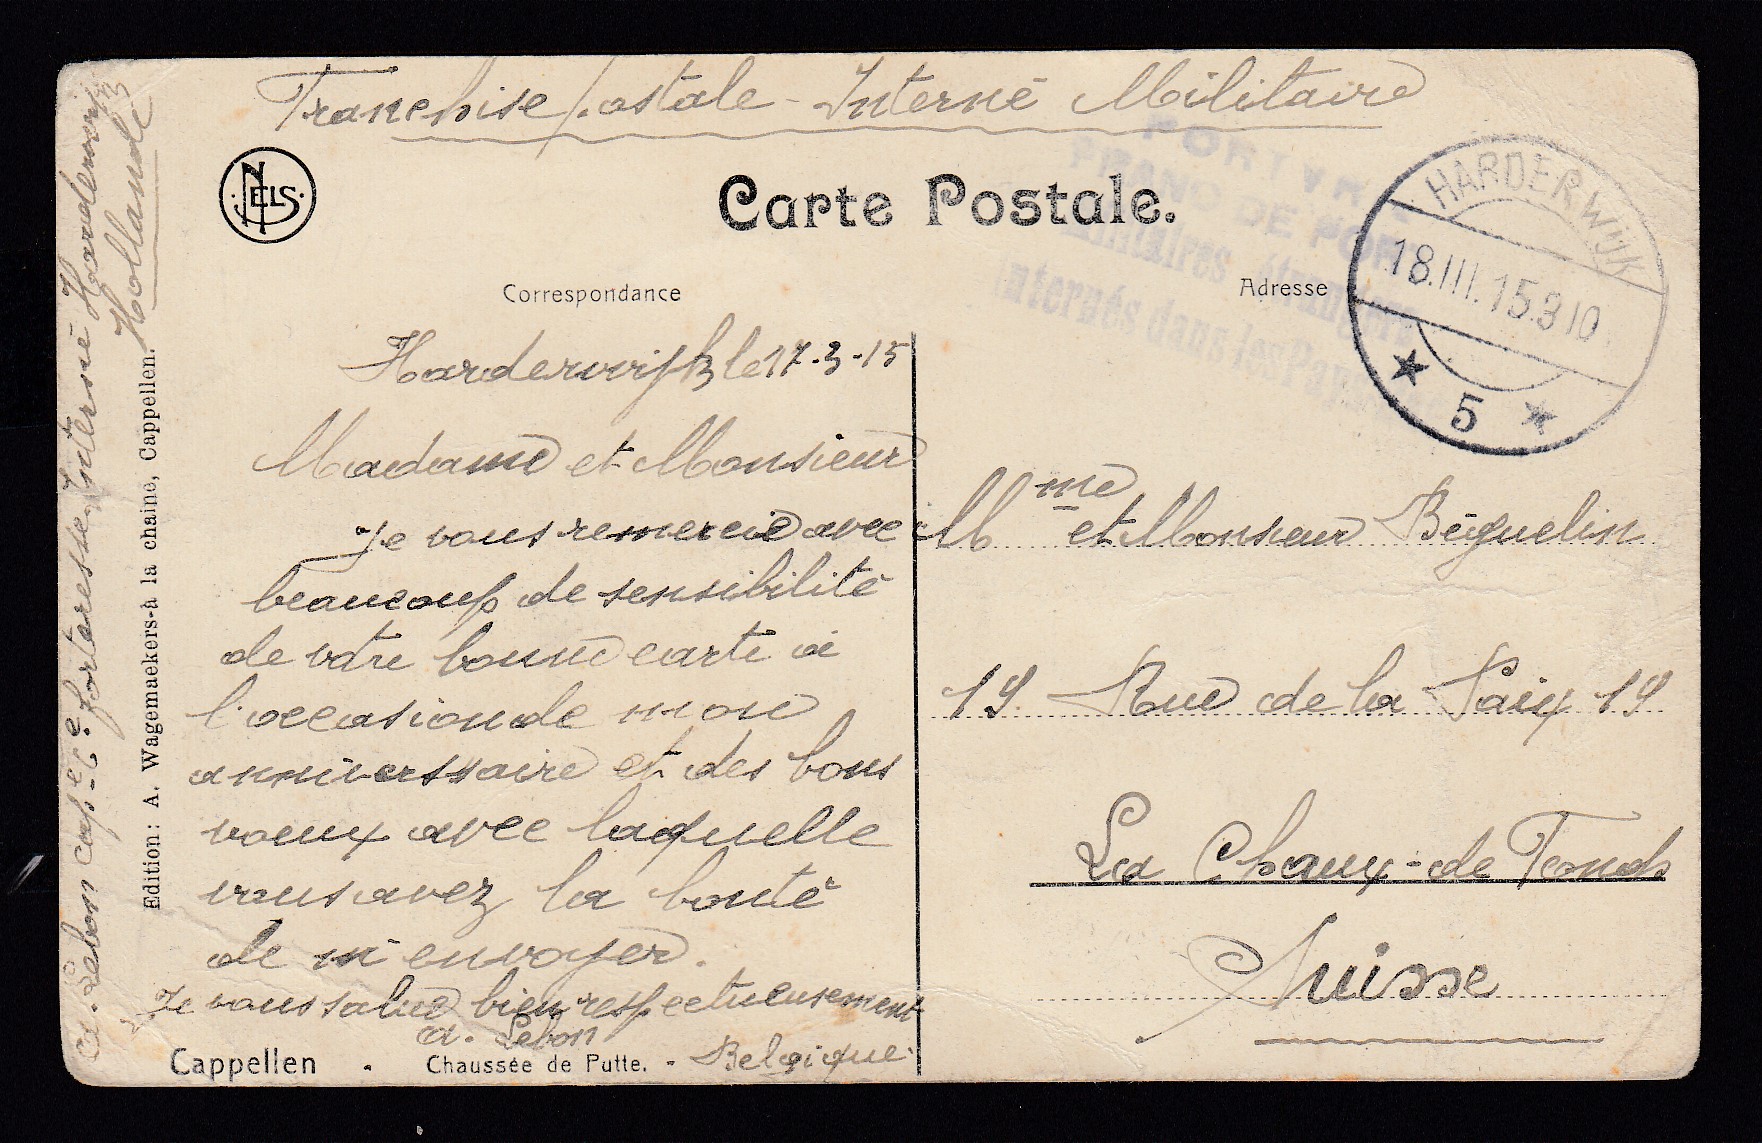 Franchise postale - Interné Militaire
NELS
Carte Postale.
PORTVRIJ
FRANC DE PORT
Militaires étrangers
internés dans les Pays
HARDERWIJK
18.III.15.3 10
5
Correspondance
Adresse
Harderwijk le 17-3-15
Madame et Monsieur
Je vous remercie avec
beaucoup de sensibilité
de votre bonne carte à
l'occasion de mon
anniverssaire et des bons
voeux avec laquelle
vous avez la bonté
de m'envoyer.
Je vous salue bien respectueusement
A. Lebon
Cappellen - Chaussée de Putte. - Belgique
Mme et Monsieur Béguelin
19 Rue de la Paix 19
La Chaux-de Fonds
Suisse
Edition : A. Wagemaekers-à la chaine, Cappellen.
A. Lebon cap. forteresse Interné Harderwijk
Hollande